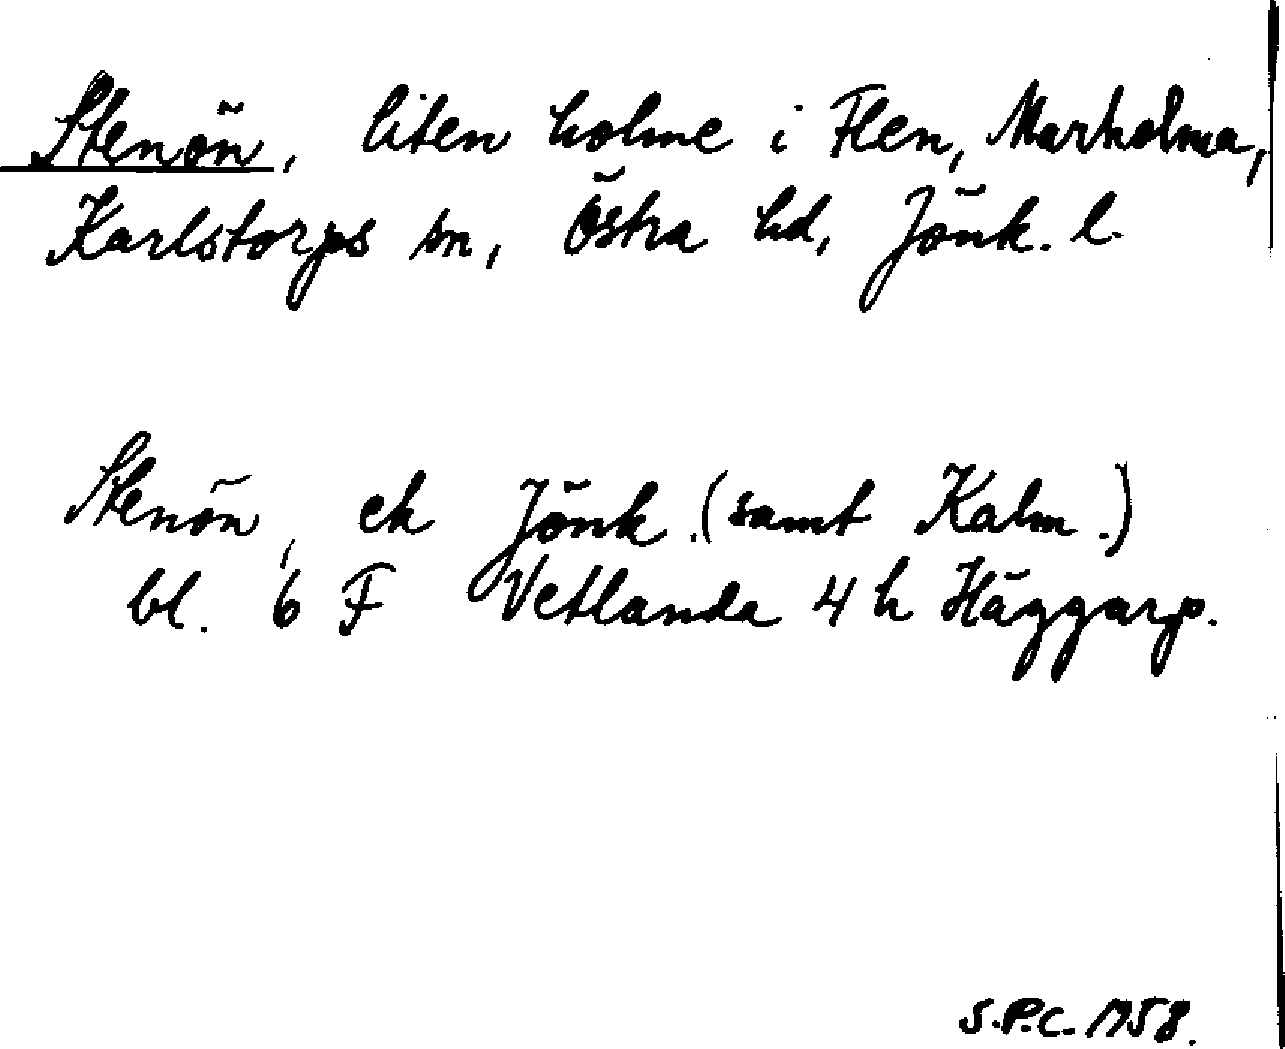 Stenön, liten holme i Flen, Marholma,
Karlstorps sn, Östra hd, Jönk. l.
Stenön, ek Jönk. (samt Kalm.)
bl. 6 F Vetlanda 4 h Häggarp.
S.P.C. 1958.